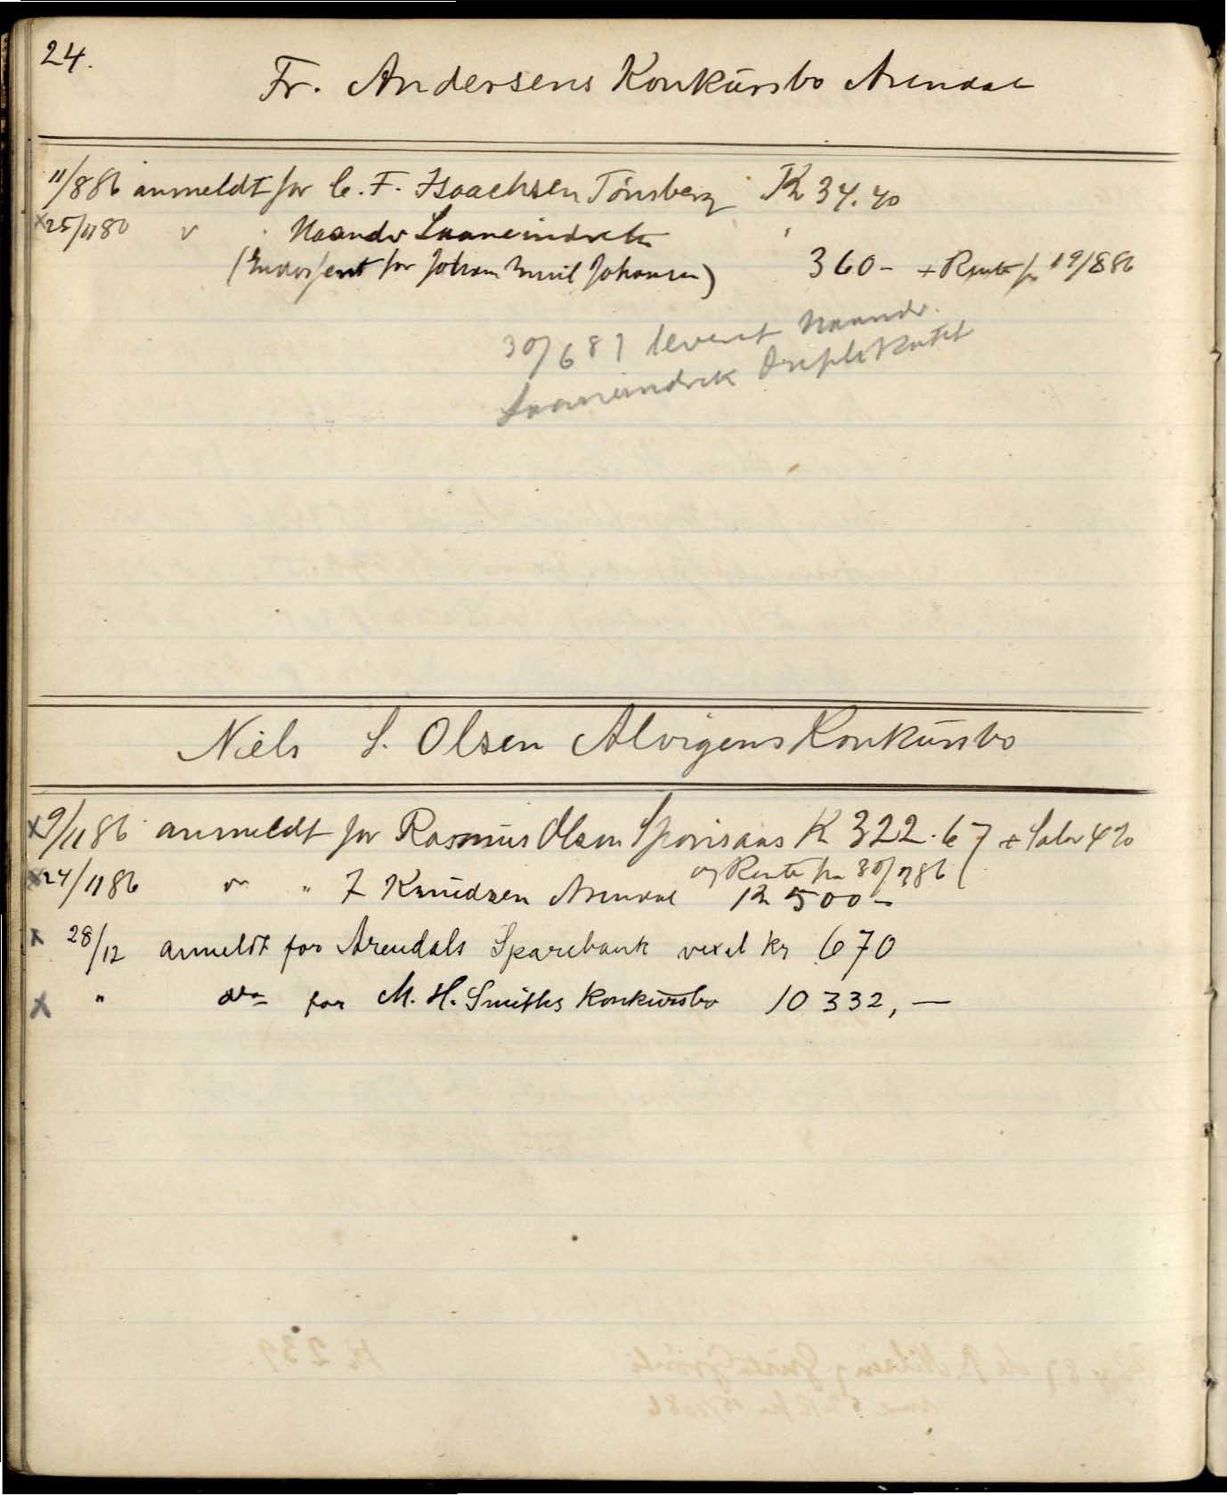 24.
Fr. Andersens Konkursbo Arendal
11/886 anmeldt for C. F. Isaachsen Tönsberg K 34.40
x 25/1186 " Haandv Laaneindretn
(Endossent for Johan Emil Johansen) 360 - + Rente fra 19/886
30/6 87 leveret Haandv.
Laaneindrtn
Niels S. Olsen Alvigens Konkursbo
x 9/1186 anmeldt for Rasmus Olsen K 322.67 + Salær 4%
og Rente fra 30/786
x 24/1186 " " Knudzen Arendal K 500 -
x 28/12 anmeldt for Arendals Sparebank vexel kr 670
x " do for M. H. Smiths Konkursbo 10 332, —